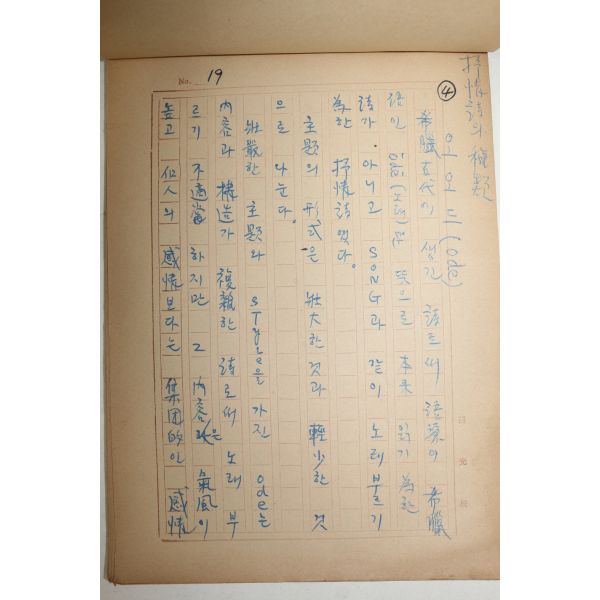 No. 19
抒情詩의 種類
④ 오오드(ode)
希臘古代에 생긴 詩로써 語源이 希臘
語인 (노래)는 뜻으로 本来 읽기 為한
詩가 아니고 SONG과 같이 노래 부르기
為한 抒情詩였다.
主題의 形式은 壯大한 것과 輕少한 것
으로 나눈다.
壯嚴한 主題와 style을 가진 ode는
內容과 構造가 複雜한 詩로써 노래 부
르기 不適當하지만 그 內容은 氣風이
높고 個人의 感情보다는 集团的인 感情